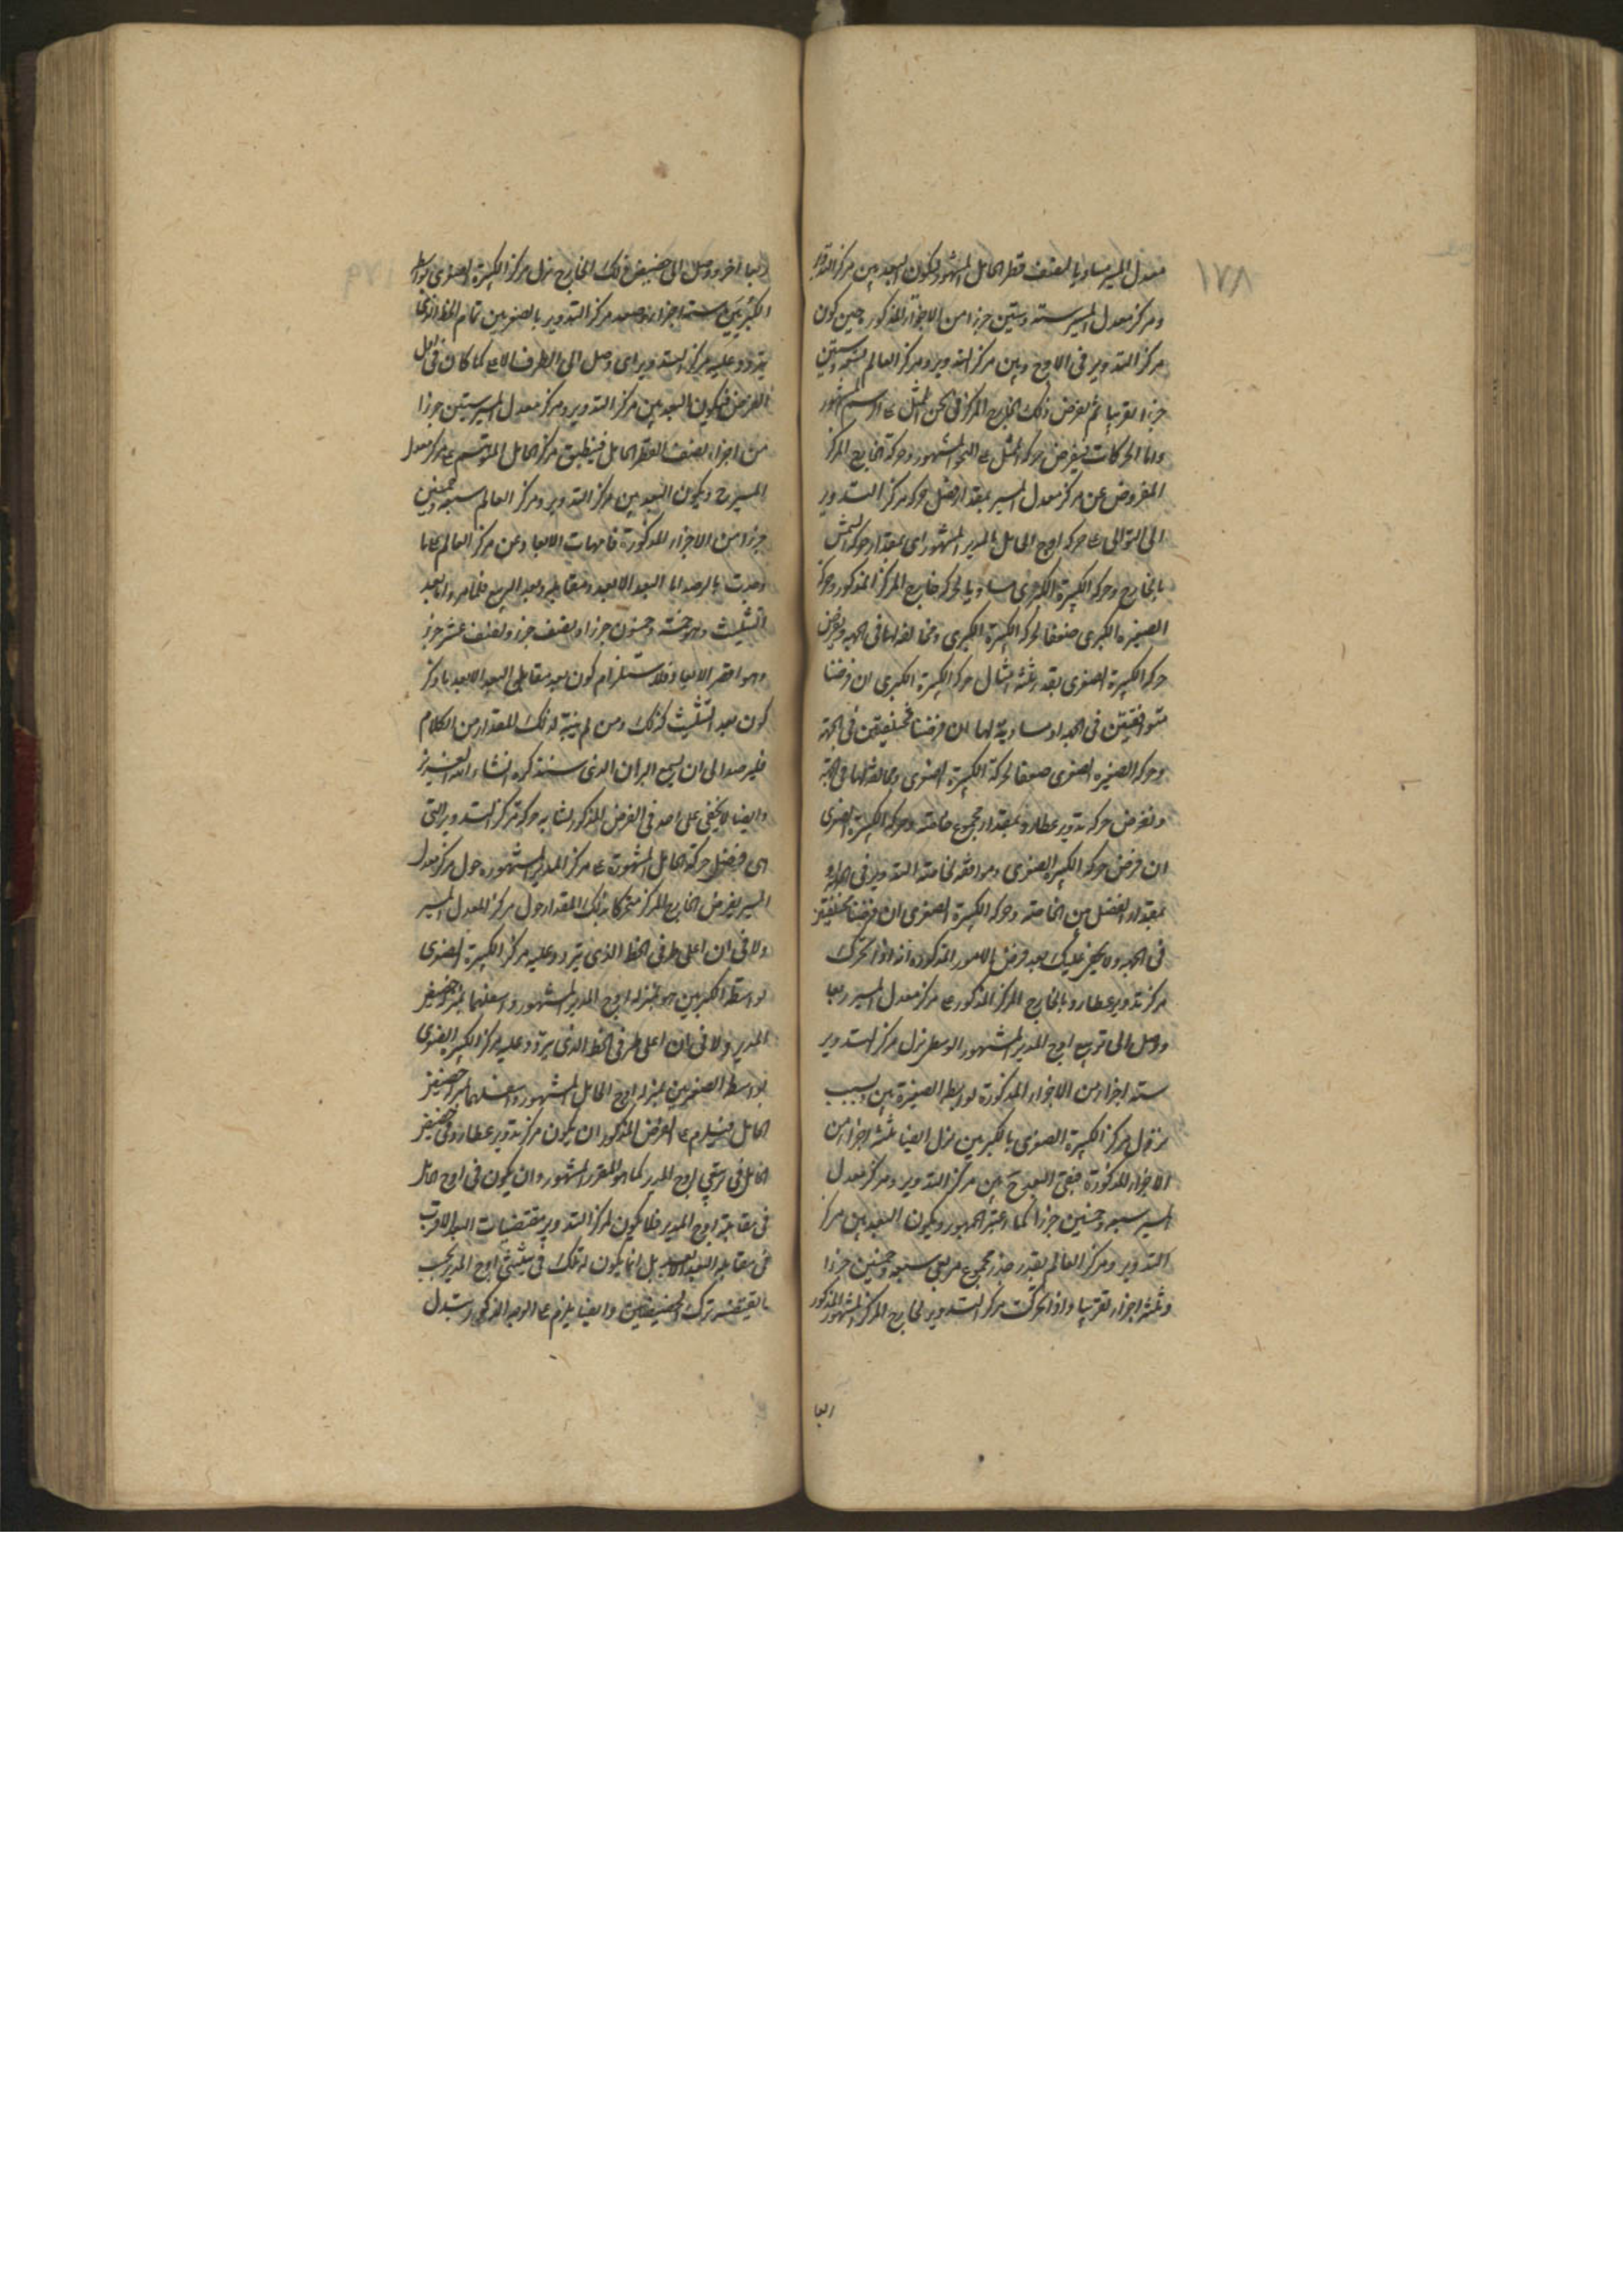 ١٧٨
معدل المسير مساويا لنصف قطر الحامل المشهور ويكون البعد بين مركز التدوير
ومركز معدل المسير ستة وستين جزءا من الاجزاء المذكورة حين كون
مركز التدوير فى الاوج وبين مركز التدوير ومركز العالم تسعة وستين
جزءا تقريبا ثم نفرض ذلك الخارج المركز فى ثخن الممثل على الرسم المشهور
واما الحركات فنفرض حركة الممثل على النحو المشهور وحركة الخارج المركز
المفروض عن مركز معدل المسير بمقدار فضل حركة مركز التدوير
الى التوالى على حركة اوج الحامل بالمدير المشهور اى بمقدار حركة الشمس
بالخارج وحركة الكبيرة الكبرى مساويا لحركة خارج المركز المذكور وحركة
الصغيرة الكبرى ضعفا لحركة الكبيرة الكبرى ومخالفة لها فى الجهة ونفرض
حركة الكبيرة الصغرى بقدر ثلثة امثال حركة الكبيرة الكبرى ان فرضنا
متوافقتين فى الجهة او مساوية لها ان فرضنا مختلفتين فى الجهة
وحركة الصغيرة الصغرى ضعفا لحركة الكبيرة الصغرى ومخالفة لها فى الجهة
ونفرض حركة تدوير عطارد بمقدار مجموع خاصته وحركة الكبيرة الصغرى
ان فرض حركة الكبيرة الصغرى وموافقة لخاصة التدوير فى
بمقدار الفضل بين الخاصة وحركة الكبيرة الصغرى ان فرضنا مختلفتين
فى الجهة ولا يخفى عليك بعد فرض الامور المذكورة انه اذا تحرك
مركز تدوير عطارد بالخارج المركز المذكور على مركز معدل المسير ربعا
ووصل الى تربيع اوج المدير المشهور الوسطى نزل مركز التدوير
ستة اجزاء من الاجزاء المذكورة بواسطة الصغيرتين وبسبب
نزول مركز الكبيرة الصغرى بالكبريين نزل ايضا ثلثة اجزاء من
الاجزاء المذكورة فبقى البعد ح بين مركز التدوير ومركز معدل
المسير سبعة وخمسين جزءا كما اعتبره الجمهور ويكون البعد بين مركز
التدوير ومركز العالم بقدر جذر مجموع مربعى سبعة وخمسين جزءا
وثلثة اجزاء تقريبا واذا تحركت مركز التدوير لخارج المركز المشهور المذكور
ربعا
ربعا اخر ووصل الى حضيض ذلك الخارج نزل مركز الكبيرة الصغرى بواسطة
الكبريين ستة اجزاء وصعد مركز التدوير بالصغريين تمام الخط الذى
يتردد عليه مركز التدوير اى وصل الى الطرف الاعلى كما كان فى اول
الفرض فيكون البعد بين مركز التدوير ومركز معدل المسير ستين جزءا
من اجزاء نصف القطر الحامل فينطبق مركز الحامل على مركز معدل
المسير ح ويكون البعد بين مركز التدوير ومركز العالم سبعة وخمسين
جزءا من الاجزاء المذكورة فامهات الابعاد عن مركز العالم على ما
وجدت بالرصد اما البعد الابعد ومقابله وبعد التربيع فلما مر واما بعد
التثليث وهو خمسة وخمسون جزءا ونصف جزء ونصف عشر جزء
وهو اقصر الابعاد فلاستلزام كون بعد مقابل البعد الابعد ما ذكر
كون بعد التثليث كذلك ومن لم ينبه لذلك المقدار من الكلام
فليرصد الى ان يسمع البرهان الذى سنذكره انشاء الله العزيز
وايضا لا يخفى على احد فى الفرض المذكور تشابه حركة مركز التدوير التى
هى فضل حركة الحامل المشهورة على مركز المدير المشهورة حول مركز معدل
المسير لفرض الخارج المركز متحركا بذلك المقدار حول مركز المعدل المسير
ولا فى ان اعلى طرفى الخط الذى يتردد عليه مركز الكبيرة الصغرى
بواسطة الكبريين هو بمنزلة اوج المدير المشهور واسفلهما بمنزلة حضيض
المدير ولا فى ان اعلى طرفى الخط الذى يتردد عليه مركز الكبيرة الصغرى
بواسطة الصغريين بمنزلة اوج الحامل المشهور واسفلهما بمنزلة حضيض
الحامل فيلزم على الفرض المذكور ان يكون مركز تدوير عطارد فى حضيض
الحامل فى تربيعى اوج المدير كما هو المقرر المشهور وان يكون فى اوج الحامل
فى مقابلة اوج المدير فلا يكون لمركز التدوير مقتضيات البعد الاقرب
فى مقابلة البعد الابعد بل انما يكون له ذلك فى تثليثى اوج المدير بحسب
ما يقتضيه تركب الحضيضين وايضا يلزم على الوجه المذكور تبدل